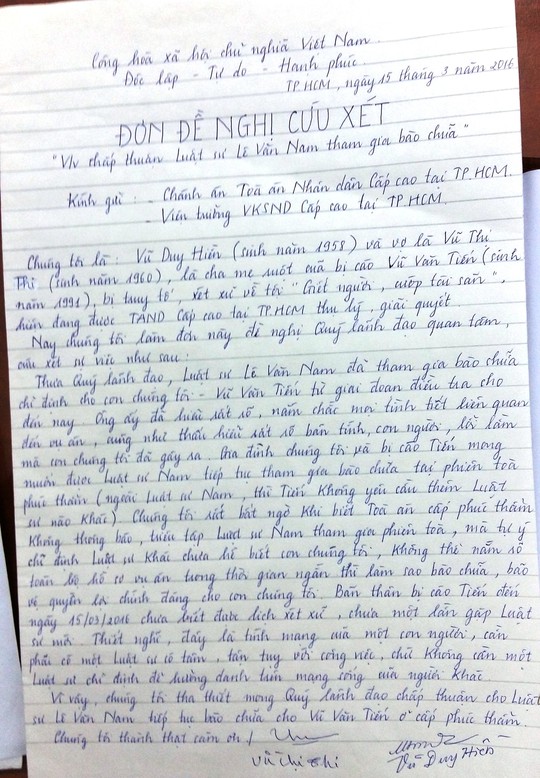 Cộng hòa xã hội chủ nghĩa Việt Nam.
Độc lập - Tự do - Hạnh phúc
TP.HCM, ngày 15 tháng 3 năm 2016
ĐƠN ĐỀ NGHỊ CỨU XÉT
"V/v chấp thuận Luật sư Lê Văn Nam tham gia bào chữa"
Kính gửi : - Chánh án Toà án Nhân dân Cấp cao tại TP.HCM.
- Viện trưởng VKSND Cấp cao tại TP.HCM.
Chúng tôi là : Vũ Duy Hiến (sinh năm 1958) và vợ là Vũ Thị
Thi (sinh năm 1960), là cha mẹ ruột của bị cáo Vũ Văn Tiến (sinh
năm 1991), bị truy tố, xét xử về tội "Giết người, cướp tài sản",
hiện đang được TAND Cấp cao tại TP.HCM thụ lý, giải quyết.
Nay chúng tôi làm đơn này đề nghị Quý lãnh đạo quan tâm,
cứu xét sự việc như sau :
Thưa Quý lãnh đạo, Luật sư Lê Văn Nam đã tham gia bào chữa
chỉ định cho con chúng tôi - Vũ Văn Tiến từ giai đoạn điều tra cho
đến nay. Ông ấy đã hiểu rất rõ, nắm chắc mọi tình tiết liên quan
đến vụ án, cũng như thấu hiểu rất rõ bản tính, con người, lỗi lầm
mà con chúng tôi đã gây ra. Gia đình chúng tôi và bị cáo Tiến mong
muốn được Luật sư Nam tiếp tục tham gia bào chữa tại phiên toà
phúc thẩm (ngoài Luật sư Nam, thì Tiến không yêu cầu thêm Luật
sư nào khác). Chúng tôi rất bất ngờ khi biết Toà án cấp phúc thẩm
không thông báo, triệu tập Luật sư Nam tham gia phiên toà, mà tự ý
chỉ định Luật sư khác chưa hề biết con chúng tôi, không thể nắm rõ
toàn bộ hồ sơ vụ án trong thời gian ngắn thì làm sao bào chữa, bảo
vệ quyền lợi chính đáng cho con chúng tôi. Bản thân bị cáo Tiến đến
ngày 15/03/2016 chưa biết được lịch xét xử, chưa một lần gặp Luật
sư mới. Thiết nghĩ, đây là tính mạng của một con người, cần
phải có một Luật sư có tâm, tận tụy với công việc, chứ không cần một
Luật sư chỉ định để hưởng danh trên mạng sống của người khác.
Vì vậy, chúng tôi tha thiết mong Quý lãnh đạo chấp thuận cho Luật
sư Lê Văn Nam tiếp tục bào chữa cho Vũ Văn Tiến ở cấp phúc thẩm.
Chúng tôi thành thật cảm ơn./.
Vũ Thị Thi
Vũ Duy Hiến